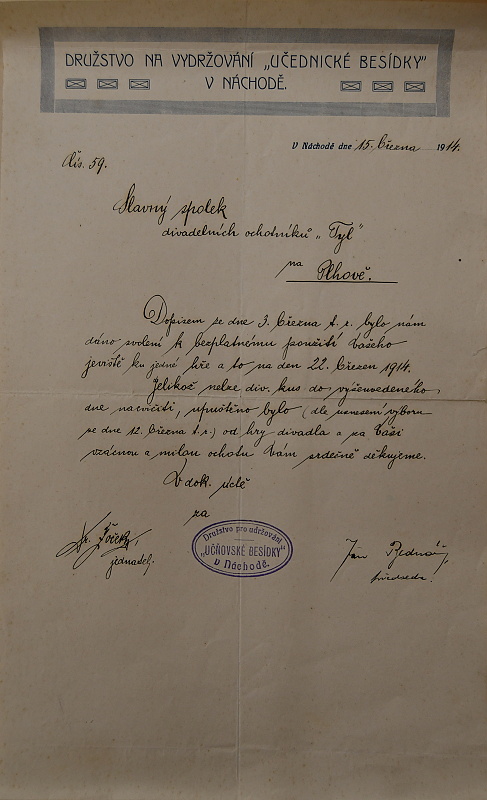 DRUŽSTVO NA VYDRŽOVÁNÍ „UČEDNICKÉ BESÍDKY"
V NÁCHODĚ.
V Náchodě dne 15. března 1914.
Čís. 59.
Slavný spolek
divadelních ochotníků „Tyl"
na
Plhově.
Dopisem ze dne 3. března t. r. bylo nám
dáno svolení k bezplatnému použití Vašeho
jeviště ku jedné hře a to na den 22. březen 1914.
Jelikož nelze div. kus do výšeuvedeného
dne nacvičiti, upuštěno bylo (dle usnesení výboru
ze dne 12. března t. r.) od hry divadla a za Vaši
vzácnou a milou ochotu Vám srdečně děkujeme.
V dok. úctě
za
Družstvo pro udržování
„UČŇOVSKÉ BESÍDKY"
v Náchodě.
Fr.
jednatel.
Jan Bednář,
předseda.